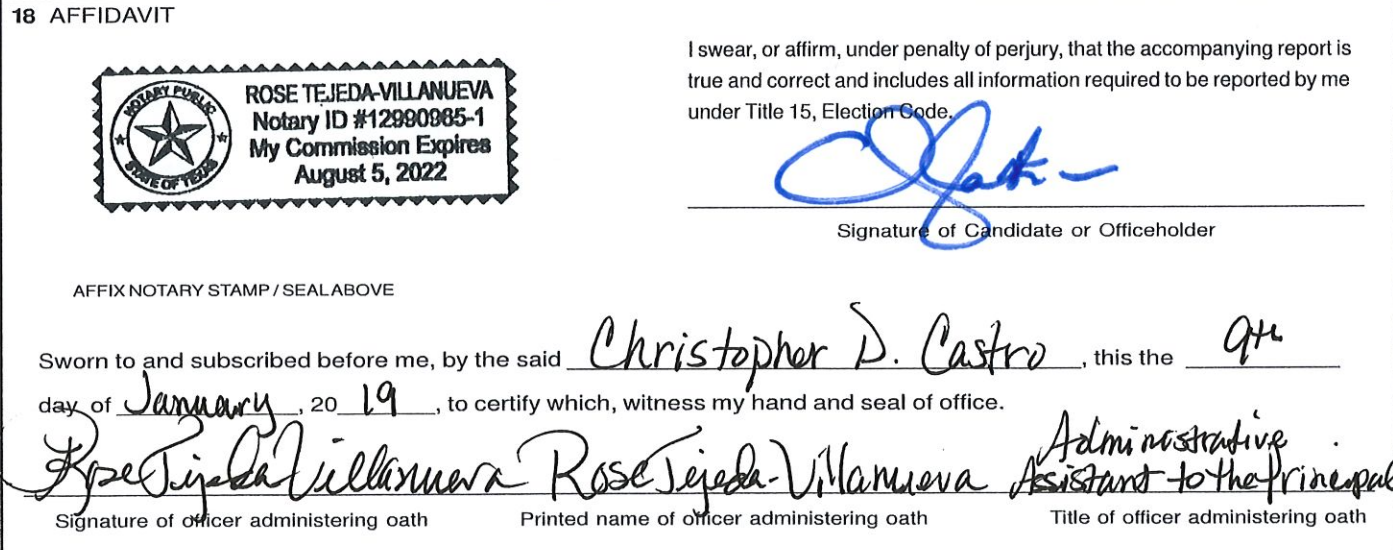 18 AFFIDAVIT
NOTARY PUBLIC
STATE OF TEXAS
ROSE TEJEDA-VILLANUEVA
Notary ID #12990965-1
My Commission Expires
August 5, 2022
I swear, or affirm, under penalty of perjury, that the accompanying report is
true and correct and includes all information required to be reported by me
under Title 15, Election Code.
Signature of Candidate or Officeholder
AFFIX NOTARY STAMP / SEAL ABOVE
Sworn to and subscribed before me, by the said Christopher D. Castro, this the 9th
day of January, 20 19, to certify which, witness my hand and seal of office.
Rose Tejeda Villanueva Rose Tejeda-Villanueva Administrative Assistant to the Principal
Signature of officer administering oath Printed name of officer administering oath Title of officer administering oath